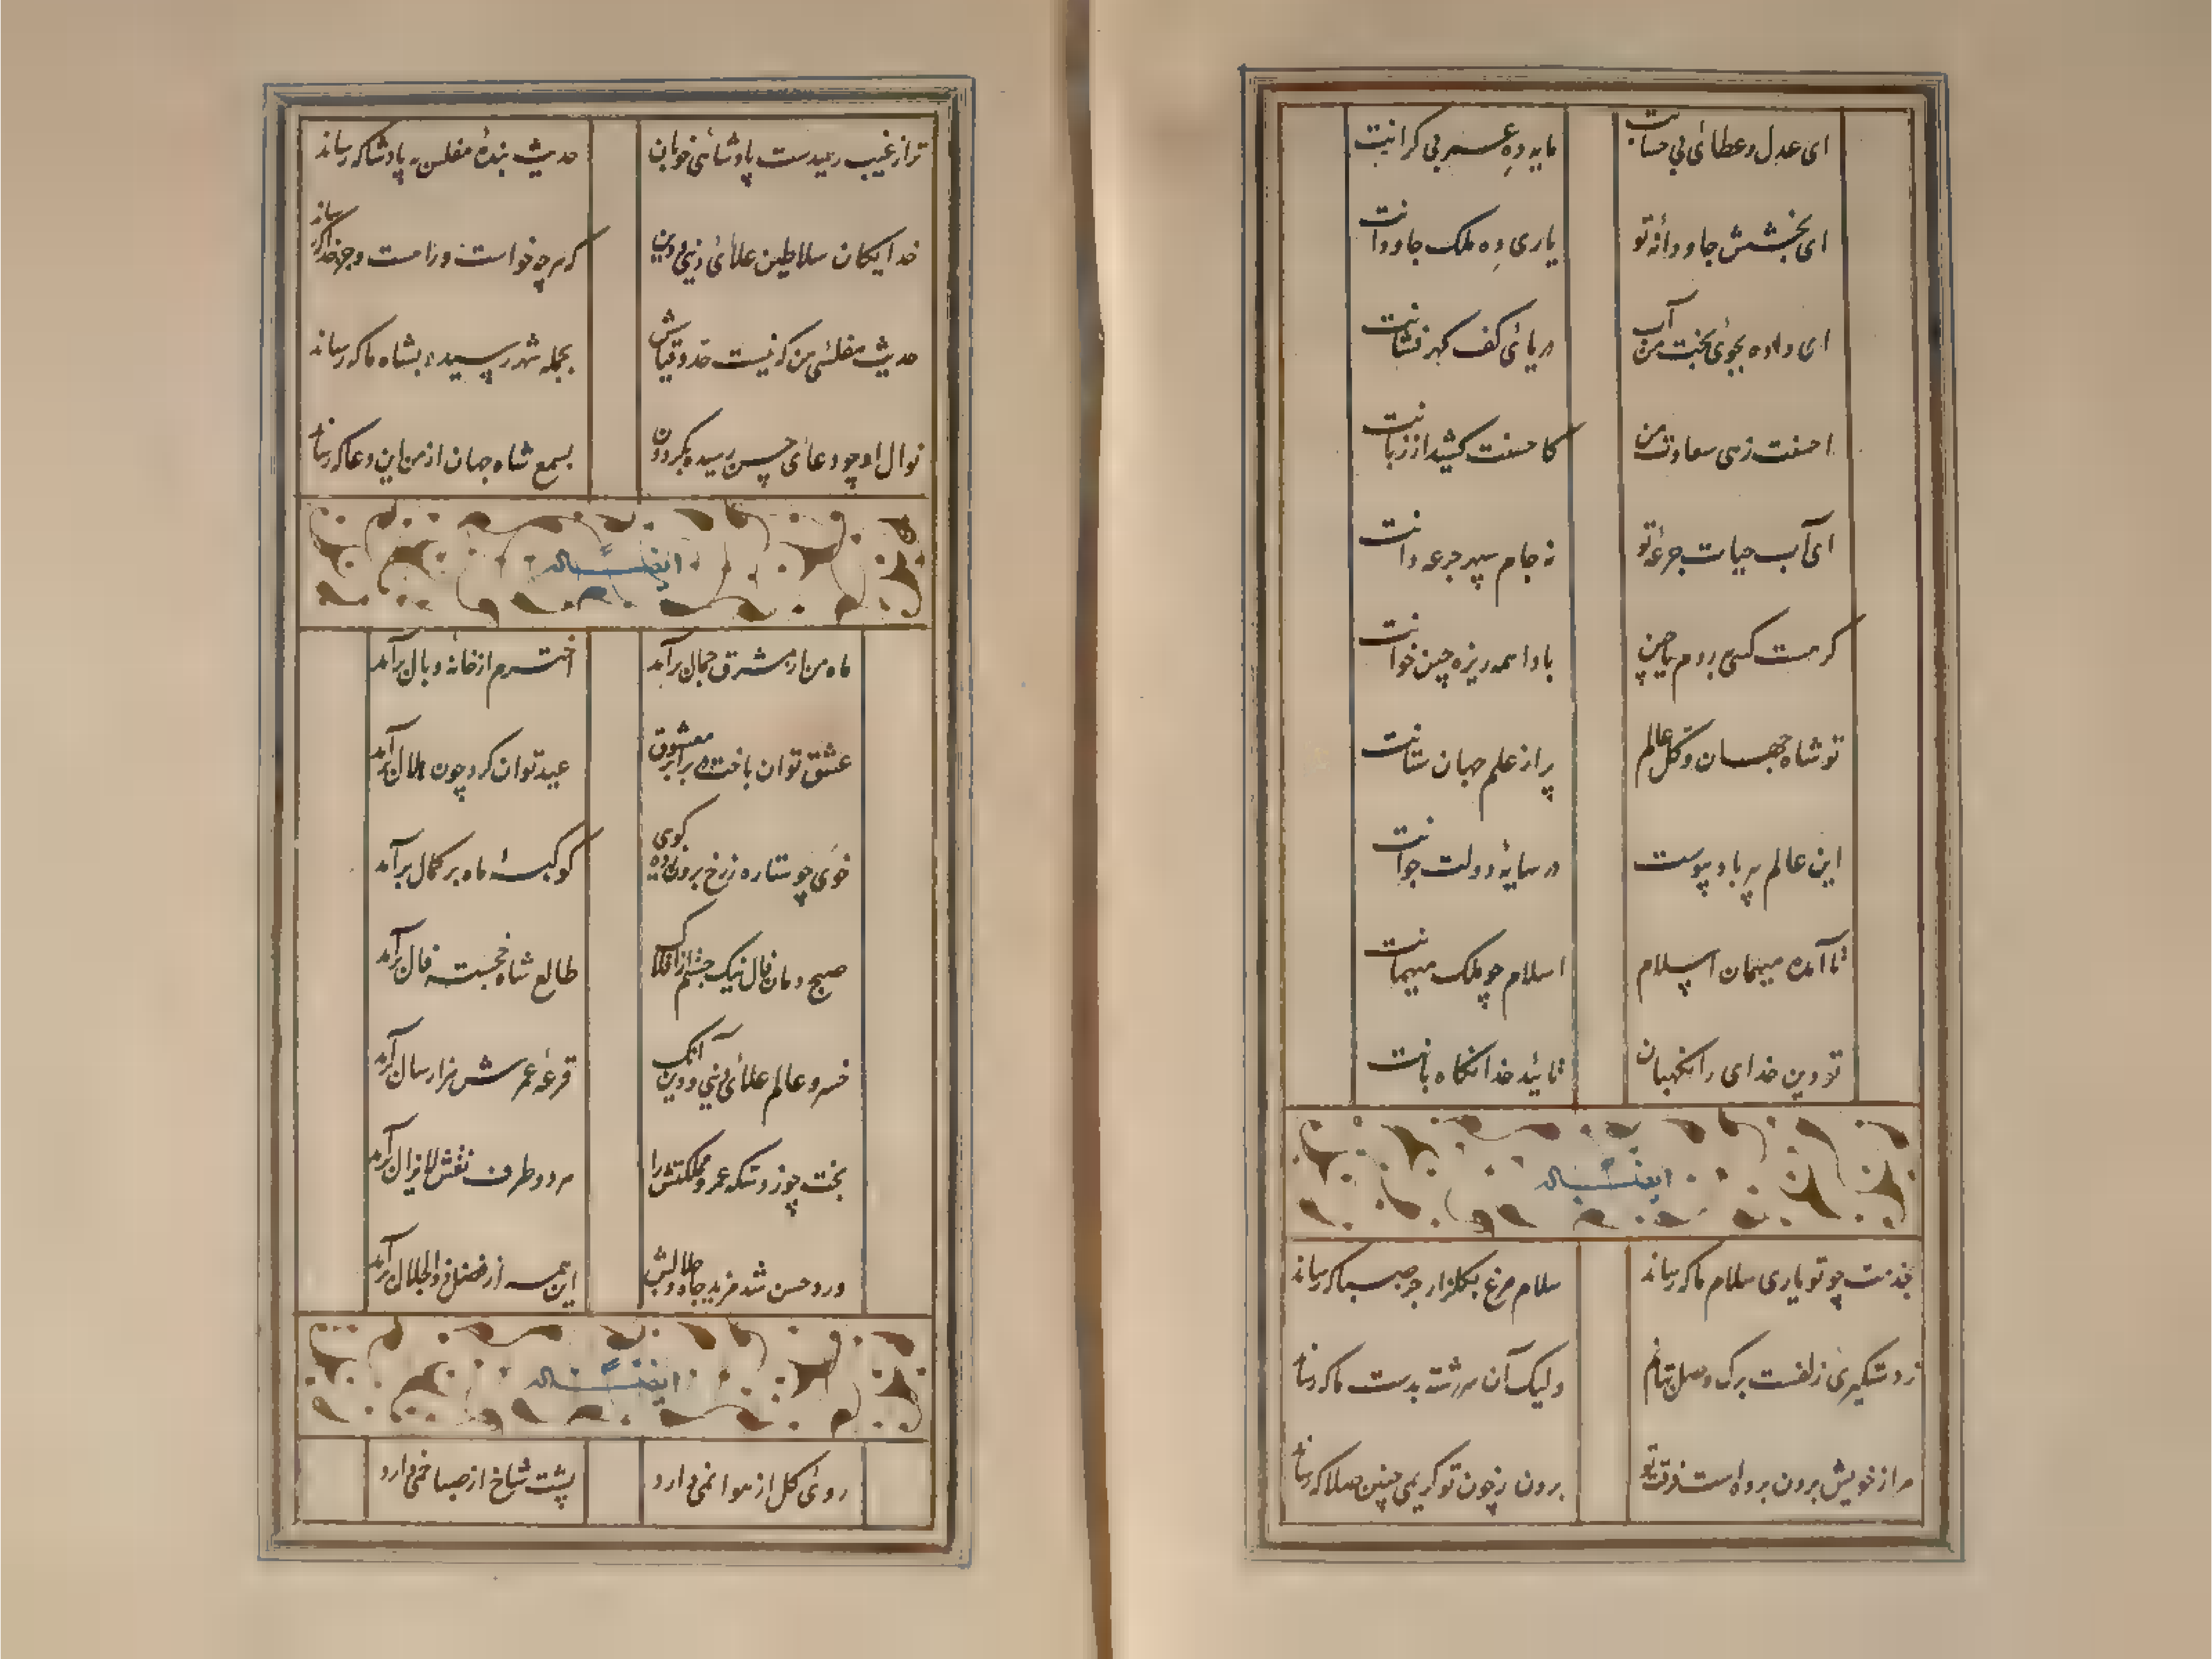 ای عدل و عطائی بی حسابت مایه ده عمر بی کرانیت
ای بخشش جاودانه تو یاری ده ملک جاودانیت
ای داده بجوی بخت من آب دریائی کف گهر فشانیت
احسنت زهی سعادت من کاحسنت کشید از زبانیت
ای آب حیات جرعه تو نه جام سپهر جرعه دانیت
کرمت کسی روم یا چین بادا همه ریزه چین خوانیت
تو شاه جهان و کل عالم پر از علم جهان ستانیت
این عالم پیر باد پیوست در سایه دولت جوانیت
تا آمده میهمان اسلام اسلام چو ملک میهمانیت
تو دین خدای را نگهبان تائید خدا نگاه بانیت
ایضاً له
بخدمت چو تو یاری سلام ما که رساند سلام مرغ بگلزار جز صبا که رساند
ز دستگیری زلفت برگ وصل ولیک آن سر رشته بدست ما که رساند
مرا ز خویش برون برده است فرقت تو برون ز چون تو کریمی چنین صلا که رساند
ترا ز غیب رسیدست پادشائی خوبان حدیث بنده مفلس به پادشا که رساند
خدایگان سلاطین علائی دنیی و دین که هر چه خواست ورا هست وجز خدا که رساند
حدیث مفلسی من که نیست حد و قیاسش بجمله شهر رسیده بشاه ما که رساند
نوال او چو دعائی حسن رسیده بگردون بسمع شاه جهان از من این دعا که رساند
ایضاً له
ماه من از مشرق جمال برآمد اخترم از خانه وبال برآمد
عشق توان باخت برابر معشوق عید توان کرد چون هلال برآمد
خوی چو ستاره ز رخ برون زده گوی کوکبه ماه بر کمال برآمد
صبح دمان فال نیک جستم از افلاک طالع شاه خجسته فال برآمد
خسرو عالم علائی دنیی و دین آنک قرعه عمرش هزار سال برآمد
بخت چو زد سکه عمر و مملکتش را هر دو طرف نقش لایزال برآمد
ورد حسن شد مزید جاه و جلالش این همه از فضل ذوالجلال برآمد
ایضاً له
روی گل از هوا نمی دارد پشت شاخ از صبا خمی دارد